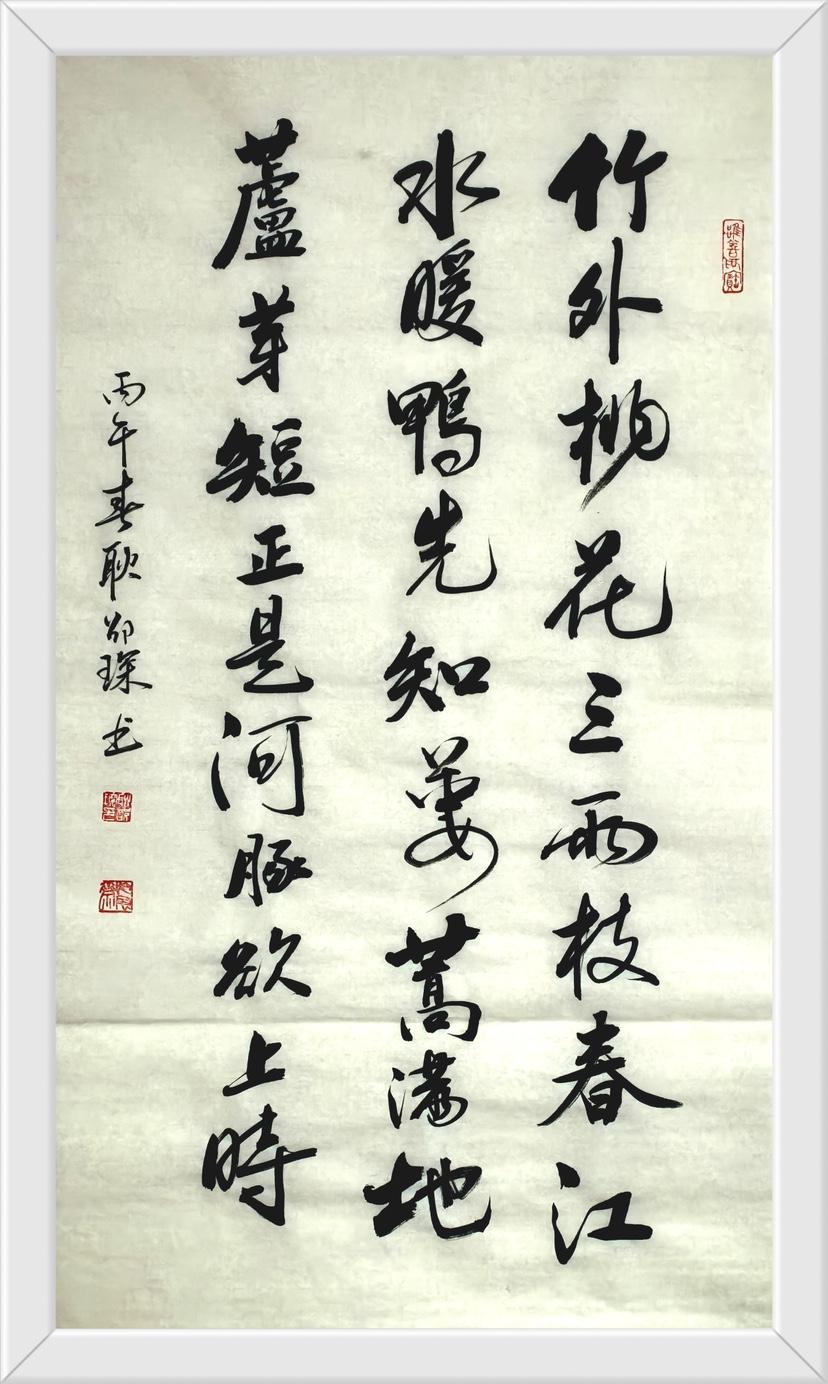 竹外桃花三兩枝春江
水暖鴨先知蔞蒿滿地
蘆芽短正是河豚欲上時
丙午春耿邵琛书